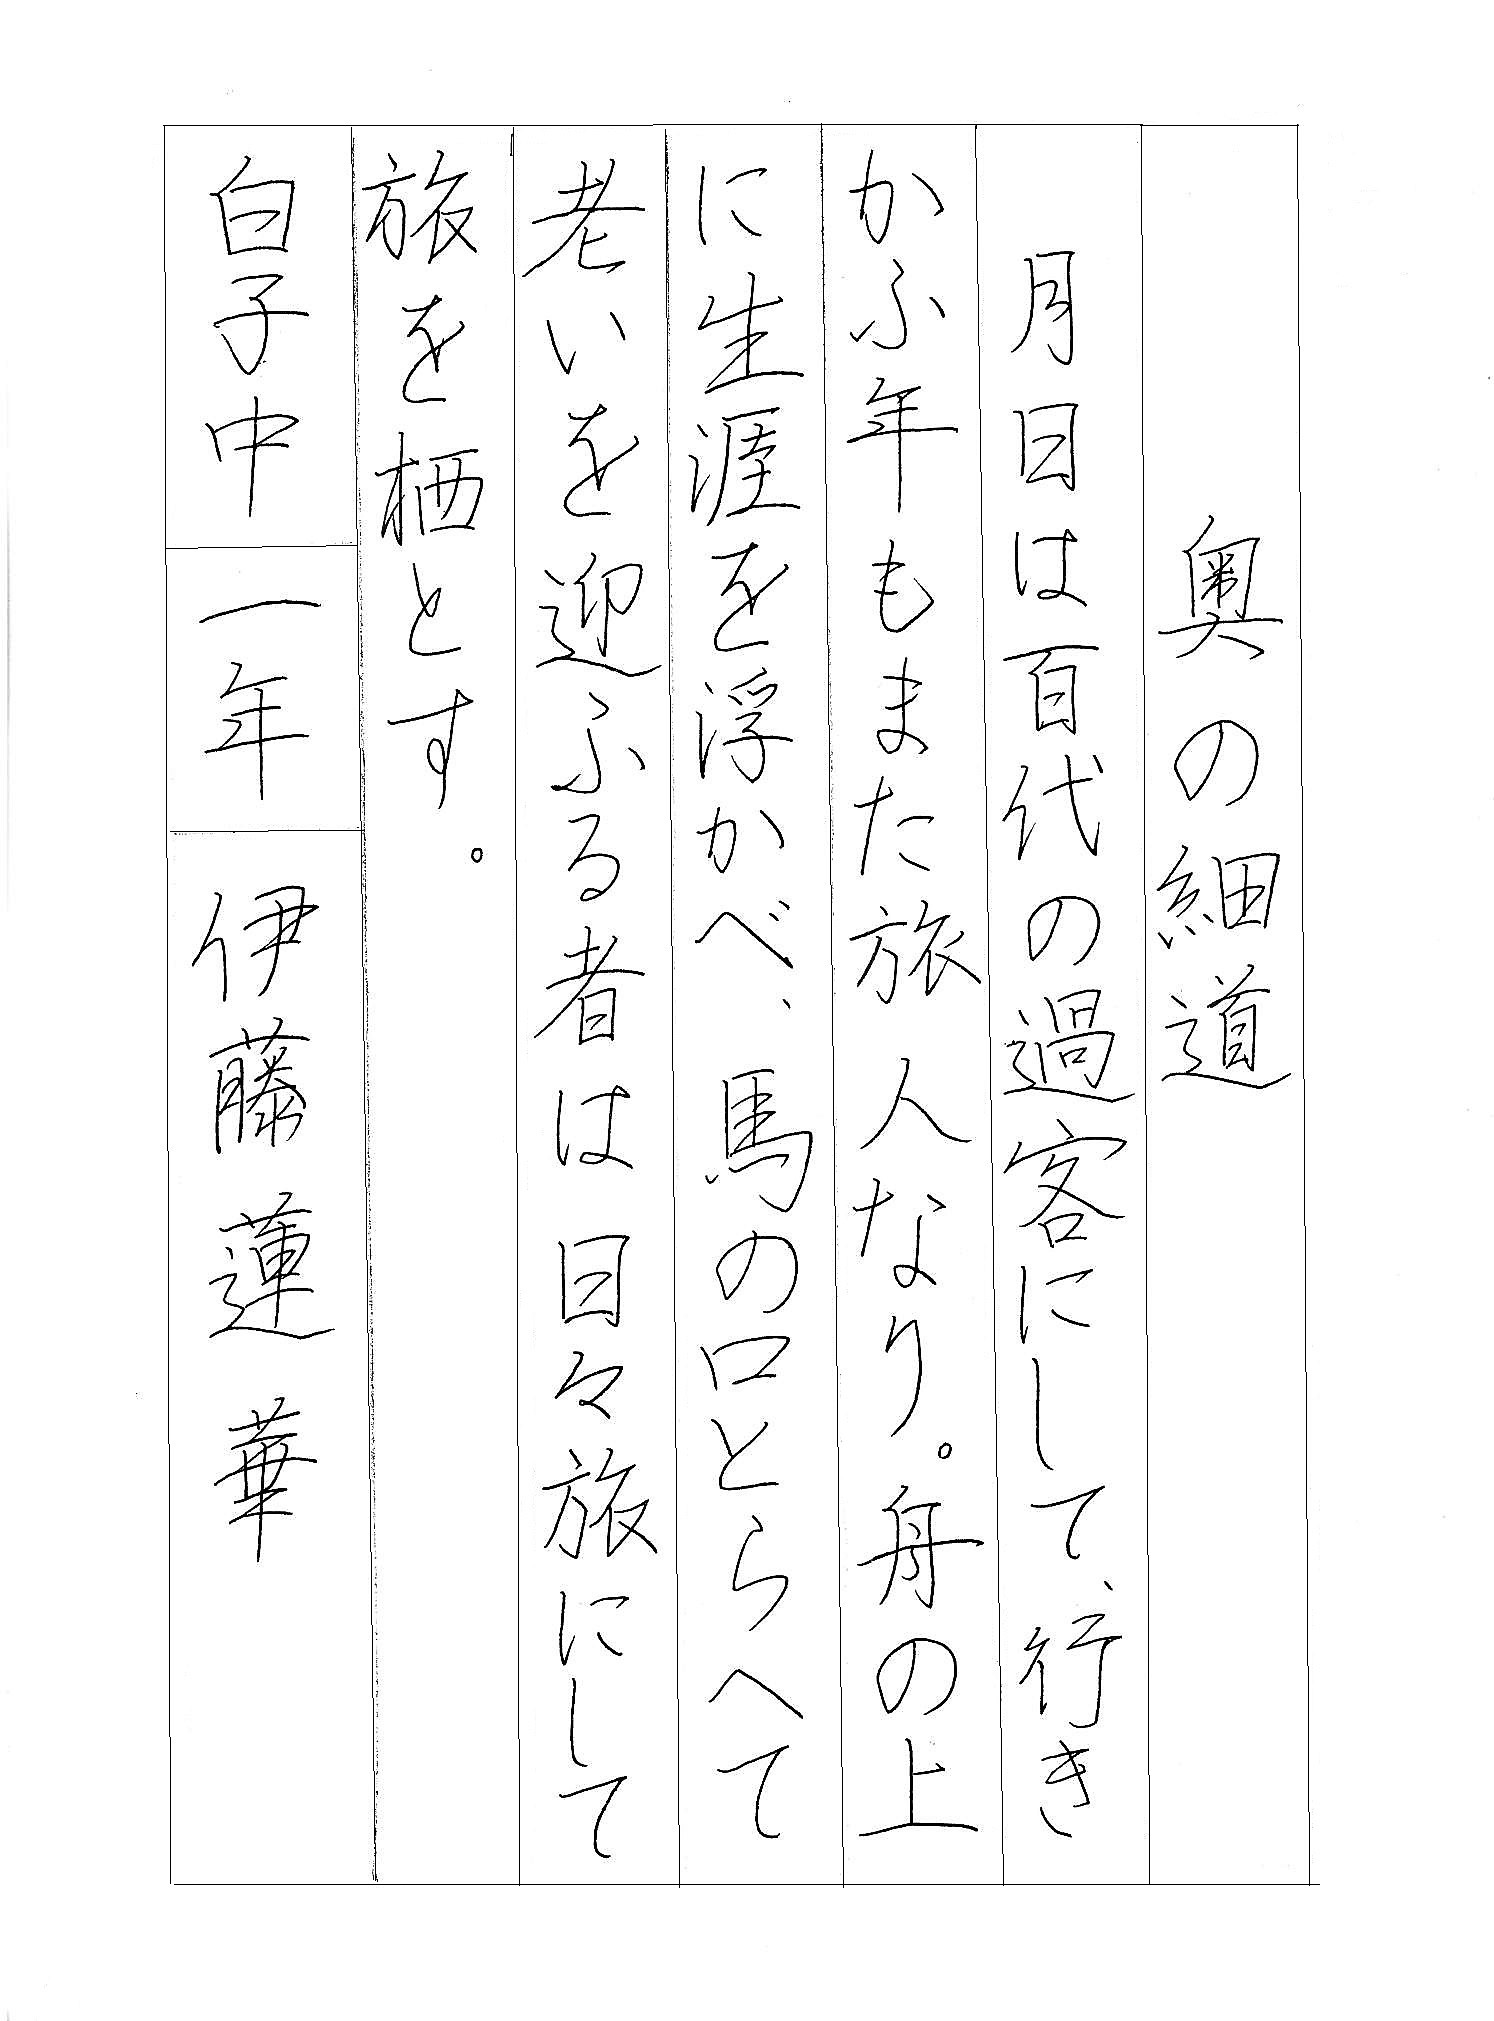 奥の細道
月日は百代の過客にして、行き
かふ年もまた旅人なり。舟の上
に生涯を浮かべ、馬の口とらへて
老いを迎ふる者は日々旅にして
旅を栖とす。
白子中 一年 伊藤蓮華